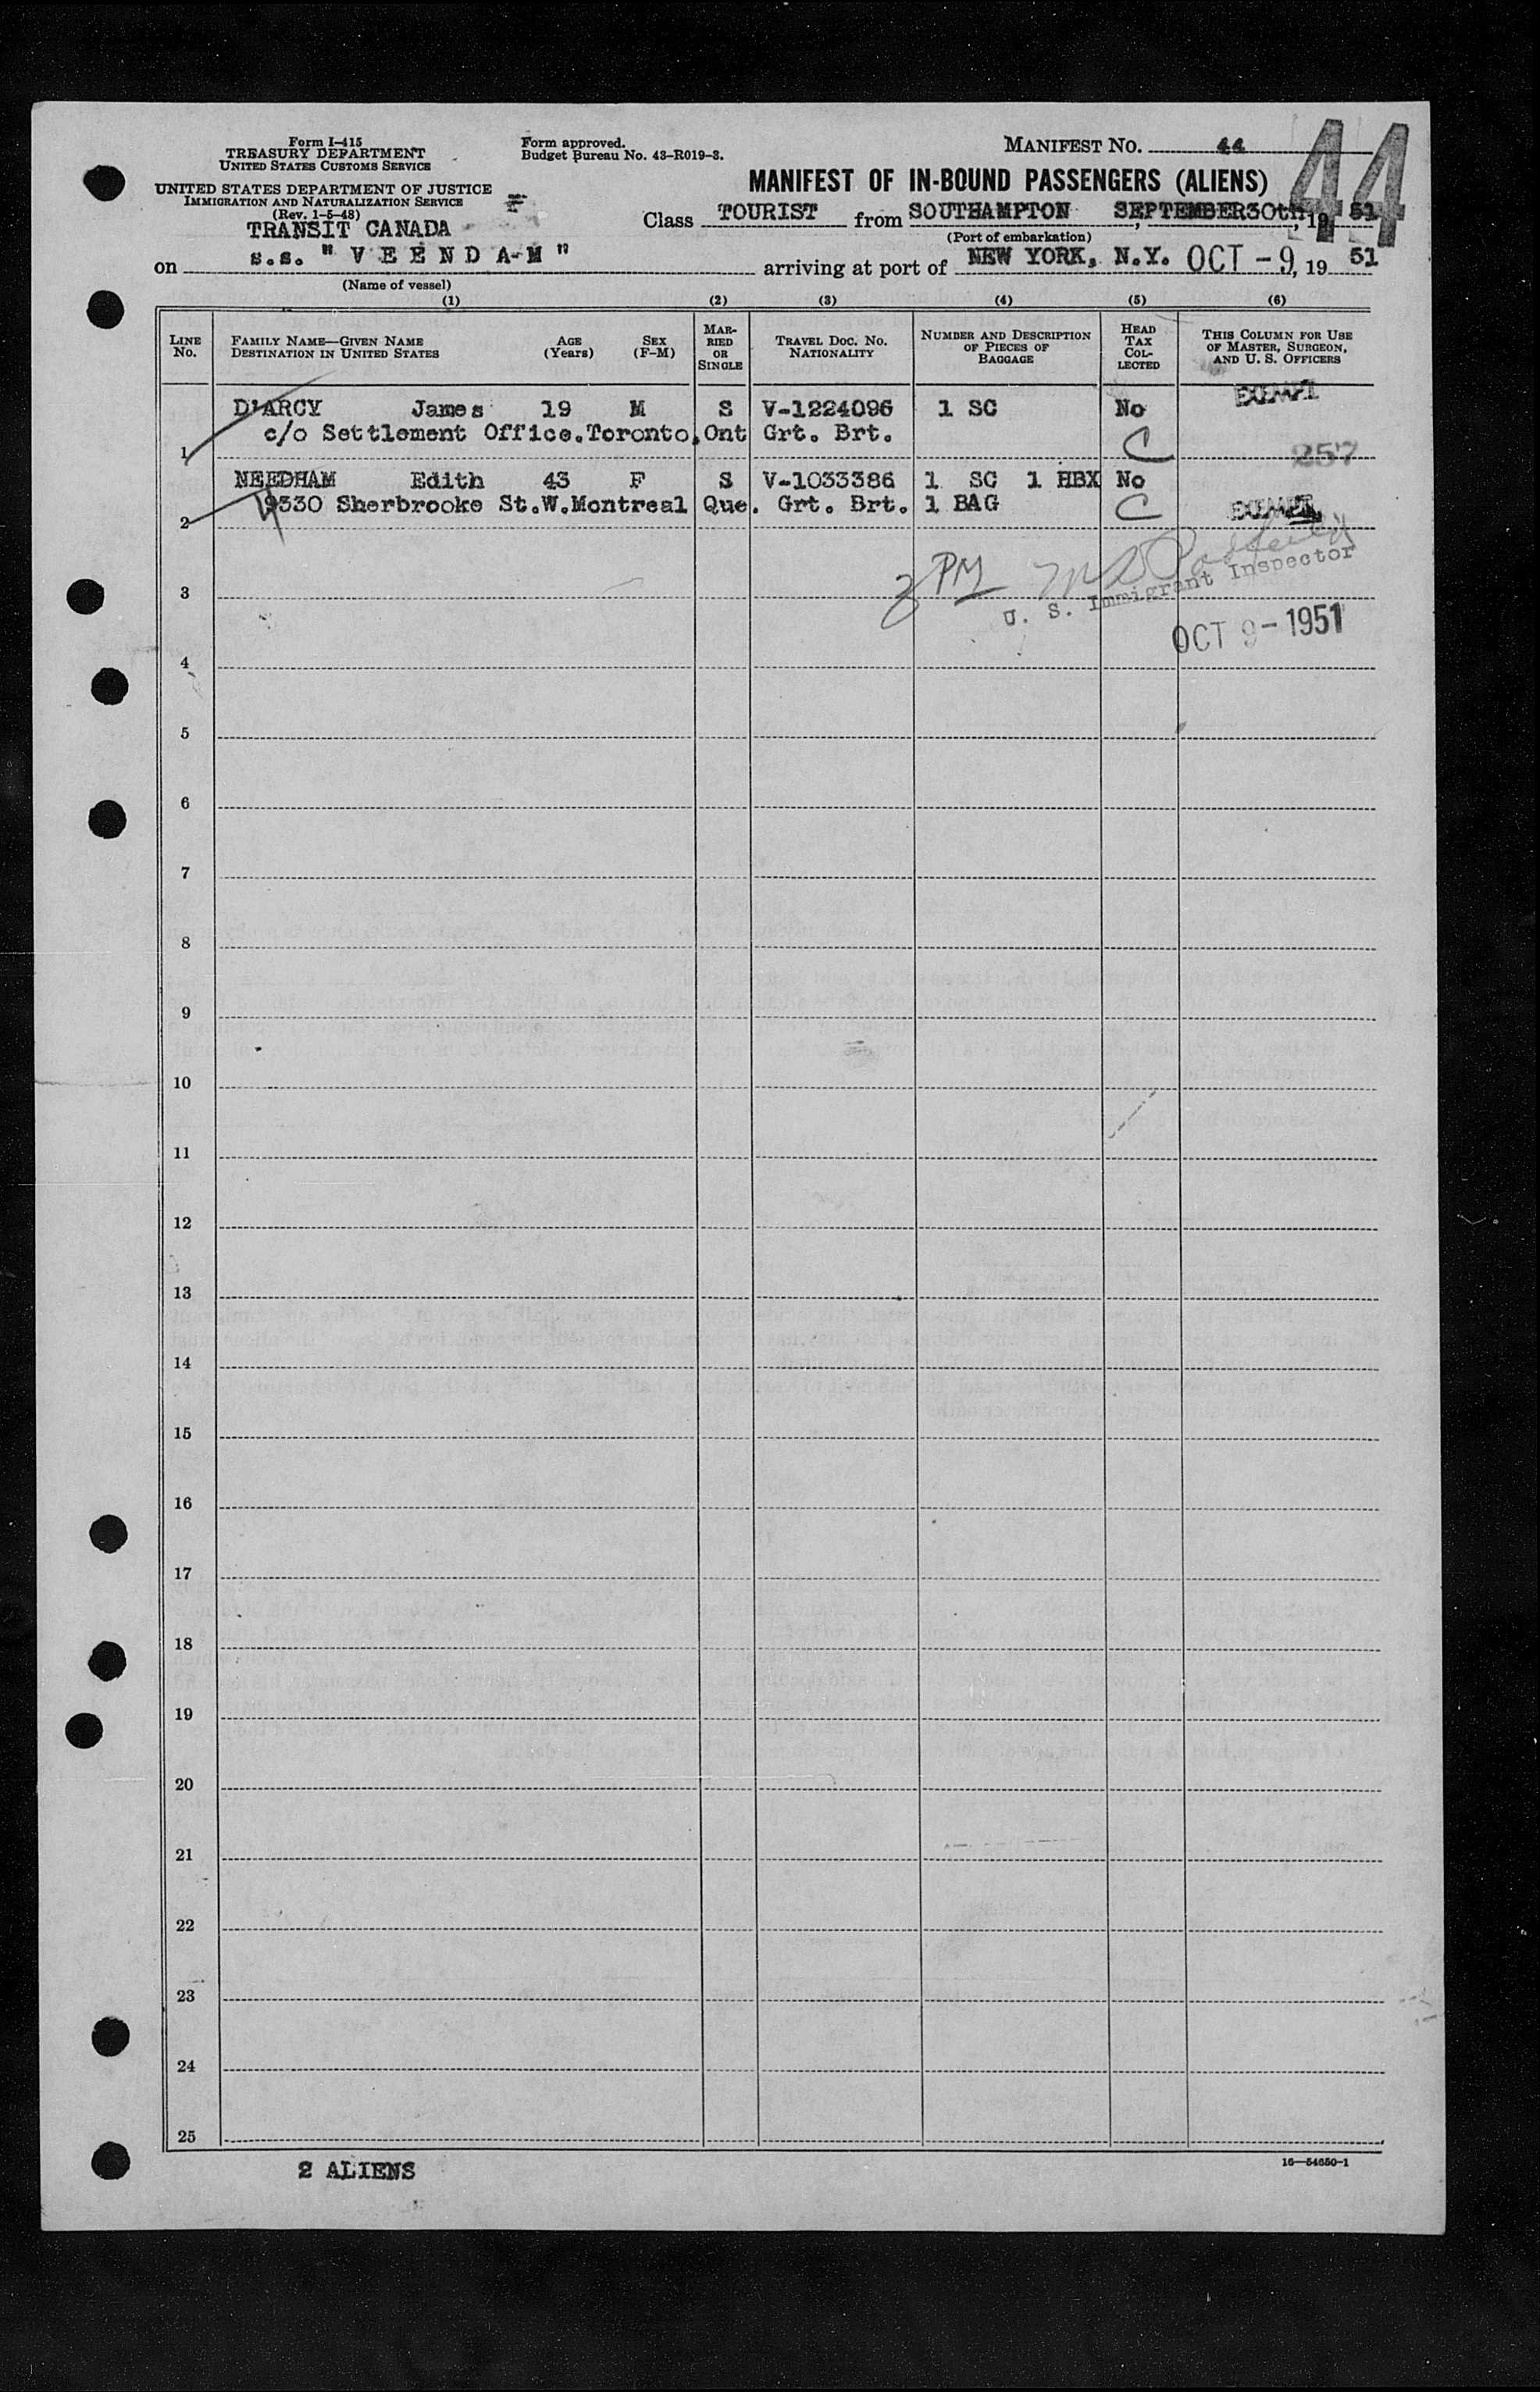 Form I-415
TREASURY DEPARTMENT
UNITED STATES CUSTOMS SERVICE
UNITED STATES DEPARTMENT OF JUSTICE
IMMIGRATION AND NATURALIZATION SERVICE
(Rev. 1-5-48)
TRANSIT CANADA
Form approved.
Budget Bureau No. 43-R019-3.
MANIFEST NO. 44
44
MANIFEST OF IN-BOUND PASSENGERS (ALIENS)
Class TOURIST from SOUTHAMPTON, SEPTEMBER30th, 19 51
(Port of embarkation)
on s.s. "VEENDAM" arriving at port of NEW YORK, N.Y. OCT -9, 19 51
(Name of vessel)
(1) (2) (3) (4) (5) (6)
LINE No. FAMILY NAME—GIVEN NAME DESTINATION IN UNITED STATES AGE (Years) SEX (F-M) MARRIED OR SINGLE TRAVEL DOC. NO. NATIONALITY NUMBER AND DESCRIPTION OF PIECES OF BAGGAGE HEAD TAX COLLECTED THIS COLUMN FOR USE OF MASTER, SURGEON, AND U. S. OFFICERS
D'ARCY James 19 M S V-1224096 1 SC No EXEMPT
1 c/o Settlement Office.Toronto.Ont Grt. Brt. C 257
NEEDHAM Edith 43 F S V-1033386 1 SC 1 HBX No
2 Sherbrooke St.W.Montreal Que. Grt. Brt. 1 BAG C EXEMPT
PM
U. S. Immigrant Inspector
3
OCT 9-1951
4
5
6
7
8
9
10
11
12
13
14
15
16
17
18
19
20
21
22
23
24
25
2 ALIENS
16—54650-1